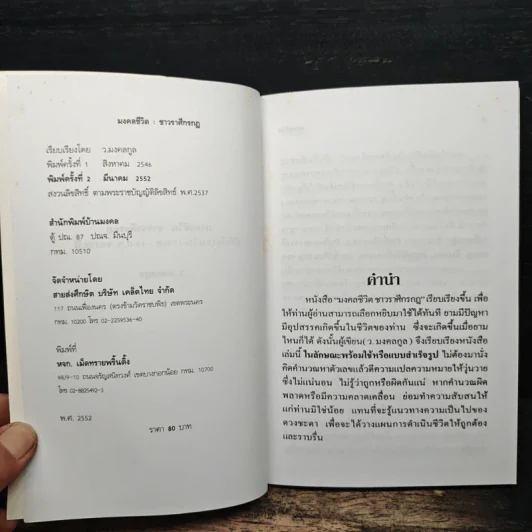 มงคลชีวิต : ชาวราศีกรกฎ
เรียบเรียงโดย ว.มงคลกูล
พิมพ์ครั้งที่ 1 สิงหาคม 2546
พิมพ์ครั้งที่ 2 มีนาคม 2552
สงวนลิขสิทธิ์ ตามพระราชบัญญัติลิขสิทธิ์ พ.ศ.2537
สำนักพิมพ์บ้านมงคล
ตู้ ปณ. 87 ปณจ. มีนบุรี
กทม. 10510
จัดจำหน่ายโดย
สายส่งศึกษิต บริษัท เคล็ดไทย จำกัด
117 ถนนเฟื่องนคร (ตรงข้ามวัดราชบพิธ) เขตพระนคร
กทม.10200 โทร 02-2259536-40
พิมพ์ที่
หจก. เม็ดทรายพริ้นติ้ง
98/9-10 ถนนจรัญสนิทวงศ์ เขตบางพลัด กทม. 10700
โทร. 02-8825492-3
พ.ศ. 2552
ราคา 80 บาท
คำนำ
หนังสือ "มงคลชีวิต ชาวราศีกรกฎ" เรียบเรียงขึ้น เพื่อ
ให้ท่านผู้อ่านสามารถเลือกหยิบมาใช้ได้ทันที ยามมีปัญหา
มีอุปสรรคเกิดขึ้นในชีวิตของท่าน ซึ่งจะเกิดขึ้นเมื่อยาม
ไหนก็ได้ ดังนั้นผู้เขียน (ว. มงคลกูล) จึงเรียบเรียงหนังสือ
เล่มนี้ ในลักษณะพร้อมใช้หรือแบบสำเร็จรูป ไม่ต้องมานั่ง
คิดคำนวณหาตัวเลขแล้วตีความแปลความหมายให้วุ่นวาย
ซึ่งไม่แน่นอน ไม่รู้ว่าถูกหรือผิดกันแน่ หากคำนวณผิด
พลาดหรือมีความคลาดเคลื่อน ย่อมทำความสับสนให้
แก่ท่านมิใช่น้อย แทนที่จะรู้แนวทางความเป็นไปของ
ดวงชะตา เพื่อจะได้วางแผนการดำเนินชีวิตให้ถูกต้อง
และราบรื่น